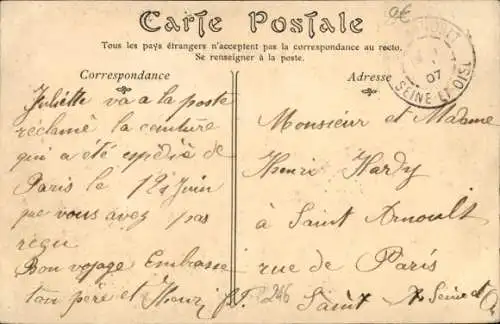 Carte Postale
Tous les pays étrangers n'acceptent pas la correspondance au recto.
Se renseigner à la poste.
Correspondance
Juliette va a la poste
réclamé la ceinture
qui a été expédié de
Paris le 12 Juin
que vous avez pas
reçu
Bon voyage Embrasse
ton père et Henri
246
Adresse
Monsieur et Madame
Henri Hardy
à Saint Arnoult
rue de Paris
Saint Seine et O
07
SEINE ET OISE